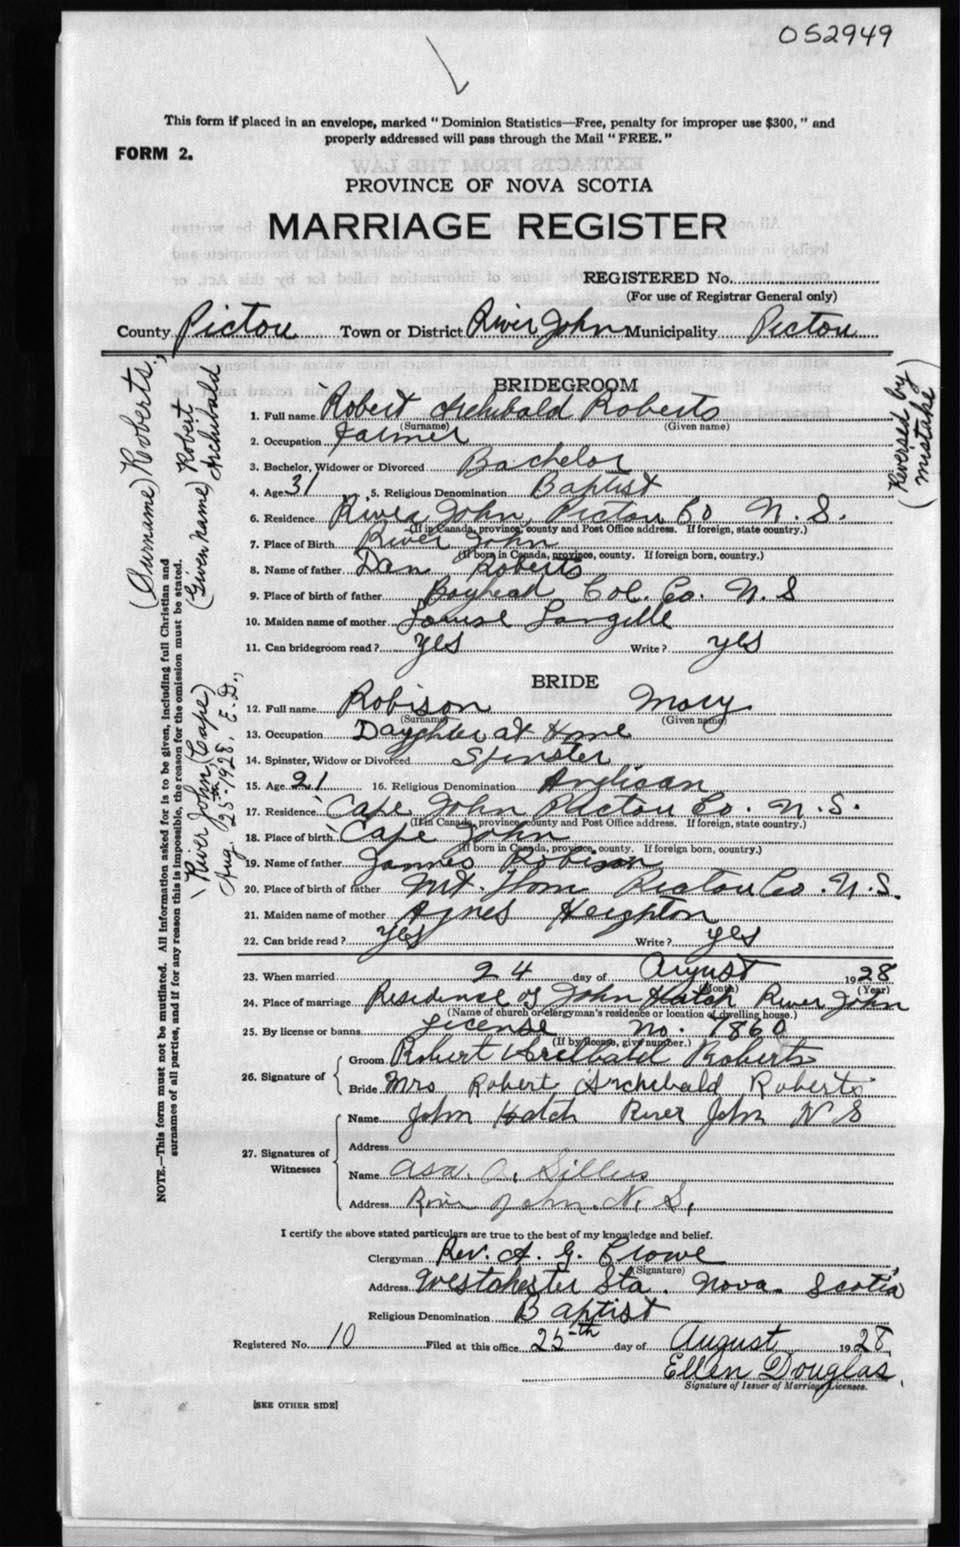 052949
This form if placed in an envelope, marked "Dominion Statistics—Free, penalty for improper use $300," and
properly addressed will pass through the Mail "FREE."
FORM 2.
EXTRACTS FROM THE LAW
PROVINCE OF NOVA SCOTIA
MARRIAGE REGISTER
REGISTERED No.
(For use of Registrar General only)
County Pictou Town or District River John Municipality Pictou
BRIDEGROOM
1. Full name Robert Archibald Roberts
(Surname) (Given name)
2. Occupation Farmer
3. Bachelor, Widower or Divorced Bachelor
4. Age 31 5. Religious Denomination Baptist
6. Residence River John, Pictou Co N. S.
(If in Canada, province, county and Post Office address. If foreign, state country.)
7. Place of Birth River John
(If born in Canada, province, county. If foreign born, country.)
8. Name of father Dan Roberts
9. Place of birth of father Bayhead Col. Co. N. S
10. Maiden name of mother Louise Langille
11. Can bridegroom read? yes Write? yes
BRIDE
12. Full name Robison Mary
(Surname) (Given name)
13. Occupation Daughter at Home
14. Spinster, Widow or Divorced Spinster
15. Age 21 16. Religious Denomination Anglican
17. Residence Cape John Pictou Co. N. S.
(If in Canada, province, county and Post Office address. If foreign, state country.)
18. Place of birth Cape John
(If born in Canada, province, county. If foreign born, country.)
19. Name of father James Robison
20. Place of birth of father Mt. Thom Pictou Co. N. S.
21. Maiden name of mother Agnes Heighton
22. Can bride read? yes Write? yes
23. When married 24 day of August 1928
(Month) (Year)
24. Place of marriage Residence of John Hatch River John
(Name of church or clergyman's residence or location of dwelling house.)
25. By license or banns License no. 7860
(If by license, give number.)
26. Signature of
Groom Robert Archibald Roberts
Bride Mrs Robert Archibald Roberts
27. Signatures of Witnesses
Name John Hatch River John N S
Address
Name Asa
Address River John. N. S.
I certify the above stated particulars are true to the best of my knowledge and belief.
Clergyman Rev. A. G. Crowe
(Signature)
Address Westchester Sta. Nova Scotia
Religious Denomination Baptist
Registered No. 10 Filed at this office 25th day of August 1928
Ellen Douglas.
Signature of Issuer of Marriage Licenses.
[SEE OTHER SIDE]
NOTE.—This form must not be mutilated. All information asked for is to be given, including full Christian and
surnames of all parties, and if for any reason this is impossible, the reason for the omission must be stated.
(Surname) Roberts,
(Given Name) Robert
Archibald
River John (Cape)
Aug. 25th-1928, E. D.,
(Reversed by
mistake)